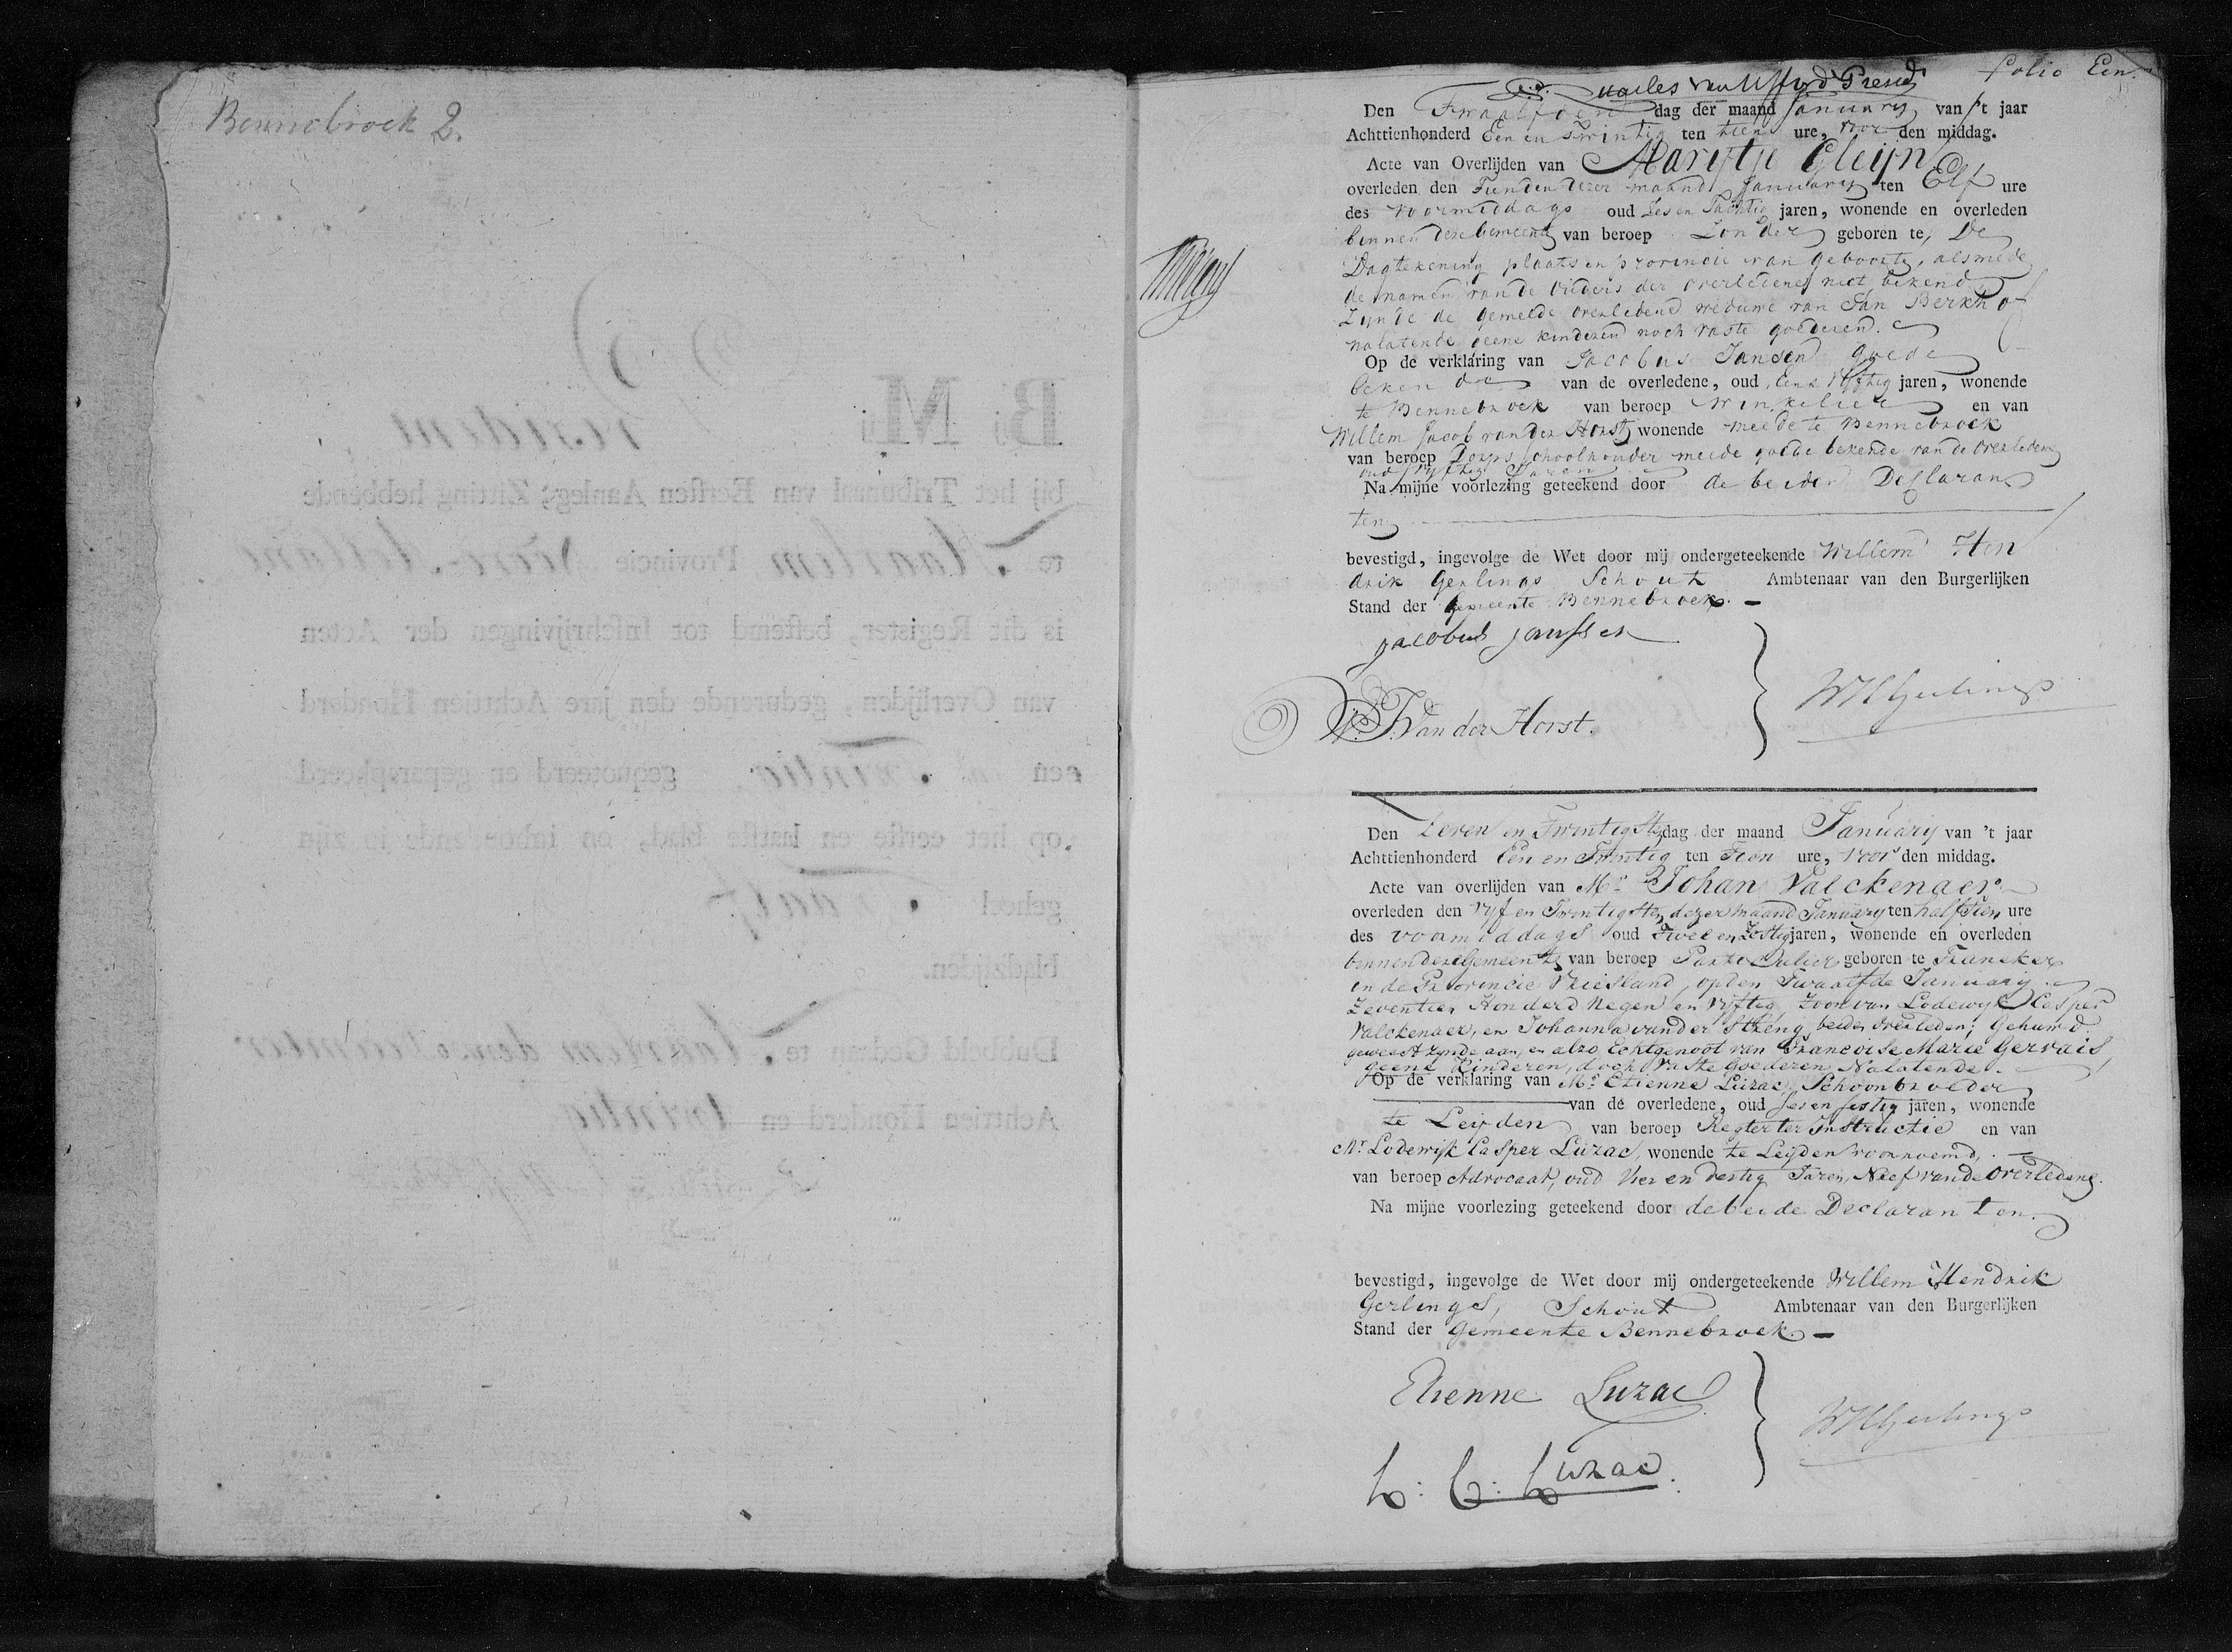 Bennebroek 2.
folio Een.
Quarles van Ufford Presid
Den Twaalfden dag der maand January van 't jaar
Achttienhonderd Een en Twintig ten tien ure, voor den middag.
Acte van Overlijden van Marijtje Cleijn
overleden den Tienden dezer maand January ten Elf ure
des voormiddags oud Sesen Tachtig jaren, wonende en overleden
binnen deze Gemeente van beroep Zonder geboren te, De
Dagtekening plaats en provincie van geboorte, alsmede
de namen van de Ouders der overledene niet bekend
Zynde de gemelde overledene weduwe van Jan Berkhof
nalatende geene kinderen noch vaste goederen.
Op de verklaring van Jacobus Jansen goede
bekende van de overledene, oud Eenen Vyftig jaren, wonende
te Bennebroek van beroep Winkelier en van
Willem Jacob van der Horst wonende meede te Bennebroek
van beroep Dorps schoolhouder meede goede bekende van de overledene
oud Vyftig Jaren
Na mijne voorlezing geteekend door de beide Declaran
ten
bevestigd, ingevolge de Wet door mij ondergeteekende Willem Hen
drik Gerlings Schout Ambtenaar van den Burgerlijken
Stand der Gemeente Bennebroek. —
Jacobus Janssen
W. J. Van der Horst.
WHGerlings
Den Zeven en Twintigste dag der maand January van 't jaar
Achttienhonderd Een en Twintig ten Tien ure, voor den middag.
Acte van overlijden van Mr. Johan Valckenaer
overleden den Vyf en Twintigsten dezer maand January ten half Tien ure
des voormiddags oud Twee en Zestig jaren, wonende en overleden
binnen deze Gemeente van beroep Particulier geboren te Franeker
in de Provincie Vriesland, op den Twaalfde January
Zeventien Honderd Negen en Vyftig, Zoon van Lodewyk Casper
Valckenaer, en Johanna van der Streng, beide overleden; Gehuwd
geweest zynde aan, en alzo Echtgenoot van Francoise Marie Gervais,
geene Kinderen, doch Vaste Goederen Nalatende.
Op de verklaring van Mr. Etienne Luzac, Schoonbroeder
van de overledene, oud Sesen sestig jaren, wonende
te Leyden van beroep Regter ter Instructie en van
Mr. Lodewijk Casper Luzac, wonende te Leyden voornoemd,
van beroep Advocaat, oud Vier en dertig Jaren, Neef van de overledene.
Na mijne voorlezing geteekend door de beide Declaranten.
bevestigd, ingevolge de Wet door mij ondergeteekende Willem Hendrik
Gerlings, Schout Ambtenaar van den Burgerlijken
Stand der Gemeente Bennebroek. —
Etienne Luzac
L: C: Luzac.
WHGerlings